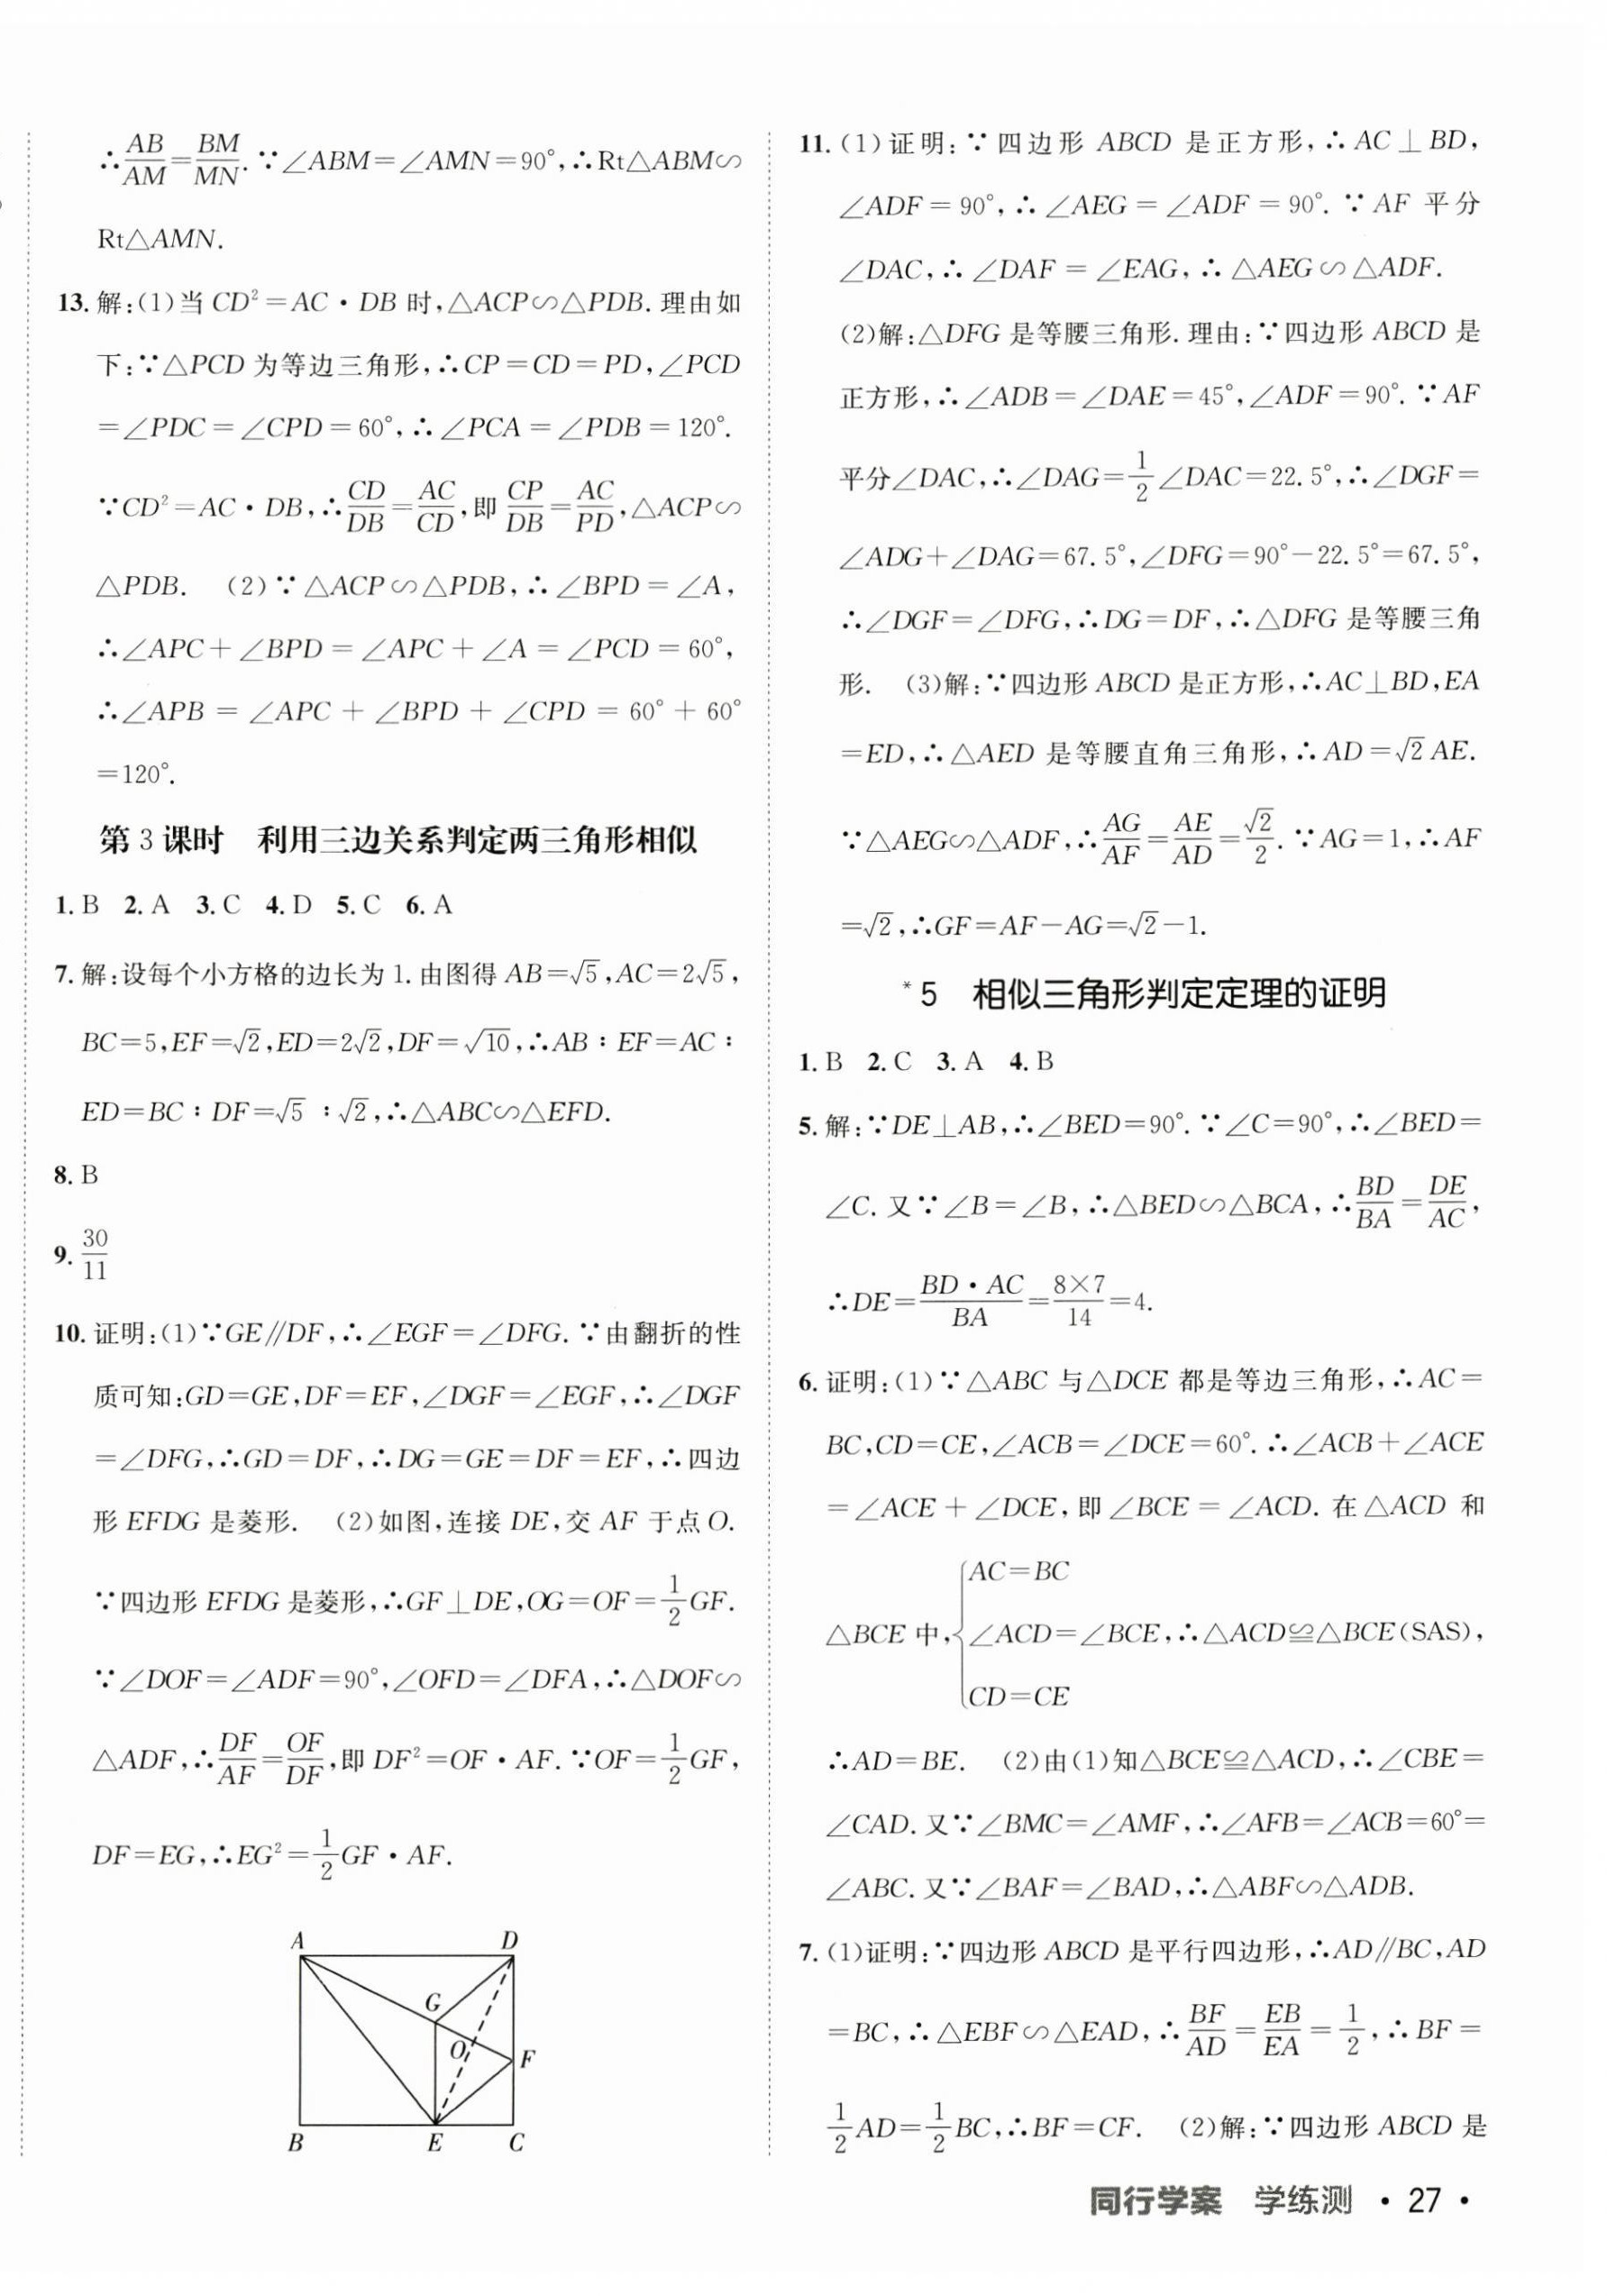 ∴AB/AM=BM/MN.∵∠ABM=∠AMN=90°,∴Rt△ABM∽
Rt△AMN.
13.解:(1)当CD²=AC·DB时,△ACP∽△PDB.理由如
下:∵△PCD为等边三角形,∴CP=CD=PD,∠PCD
=∠PDC=∠CPD=60°,∴∠PCA=∠PDB=120°.
∵CD²=AC·DB,∴CD/DB=AC/CD,即CP/DB=AC/PD,△ACP∽
△PDB. (2)∵△ACP∽△PDB,∴∠BPD=∠A,
∴∠APC+∠BPD=∠APC+∠A=∠PCD=60°,
∴∠APB=∠APC+∠BPD+∠CPD=60°+60°
=120°.
第3课时 利用三边关系判定两三角形相似
1.B 2.A 3.C 4.D 5.C 6.A
7.解:设每个小方格的边长为1.由图得AB=√5,AC=2√5,
BC=5,EF=√2,ED=2√2,DF=√10,∴AB:EF=AC:
ED=BC:DF=√5:√2,∴△ABC∽△EFD.
8.B
9.30/11
10.证明:(1)∵GE∥DF,∴∠EGF=∠DFG.∵由翻折的性
质可知:GD=GE,DF=EF,∠DGF=∠EGF,∴∠DGF
=∠DFG,∴GD=DF,∴DG=GE=DF=EF,∴四边
形EFDG是菱形. (2)如图,连接DE,交AF于点O.
∵四边形EFDG是菱形,∴GF⊥DE,OG=OF=1/2GF.
∵∠DOF=∠ADF=90°,∠OFD=∠DFA,∴△DOF∽
△ADF,∴DF/AF=OF/DF,即DF²=OF·AF.∵OF=1/2GF,
DF=EG,∴EG²=1/2GF·AF.
A D
G
O F
B E C
11.(1)证明:∵四边形ABCD是正方形,∴AC⊥BD,
∠ADF=90°,∴∠AEG=∠ADF=90°.∵AF平分
∠DAC,∴∠DAF=∠EAG,∴△AEG∽△ADF.
(2)解:△DFG是等腰三角形.理由:∵四边形ABCD是
正方形,∴∠ADB=∠DAE=45°,∠ADF=90°.∵AF
平分∠DAC,∴∠DAG=1/2∠DAC=22.5°,∴∠DGF=
∠ADG+∠DAG=67.5°,∠DFG=90°-22.5°=67.5°,
∴∠DGF=∠DFG,∴DG=DF,∴△DFG是等腰三角
形. (3)解:∵四边形ABCD是正方形,∴AC⊥BD,EA
=ED,∴△AED是等腰直角三角形,∴AD=√2AE.
∵△AEG∽△ADF,∴AG/AF=AE/AD=√2/2.∵AG=1,∴AF
=√2,∴GF=AF-AG=√2-1.
*5 相似三角形判定定理的证明
1.B 2.C 3.A 4.B
5.解:∵DE⊥AB,∴∠BED=90°.∵∠C=90°,∴∠BED=
∠C.又∵∠B=∠B,∴△BED∽△BCA,∴BD/BA=DE/AC,
∴DE=BD·AC/BA=8×7/14=4.
6.证明:(1)∵△ABC与△DCE都是等边三角形,∴AC=
BC,CD=CE,∠ACB=∠DCE=60°.∴∠ACB+∠ACE
=∠ACE+∠DCE,即∠BCE=∠ACD.在△ACD和
AC=BC
△BCE中,{∠ACD=∠BCE,∴△ACD≌△BCE(SAS),
CD=CE
∴AD=BE. (2)由(1)知△BCE≌△ACD,∴∠CBE=
∠CAD.又∵∠BMC=∠AMF,∴∠AFB=∠ACB=60°=
∠ABC.又∵∠BAF=∠BAD,∴△ABF∽△ADB.
7.(1)证明:∵四边形ABCD是平行四边形,∴AD∥BC,AD
=BC,∴△EBF∽△EAD,∴BF/AD=EB/EA=1/2,∴BF=
1/2AD=1/2BC,∴BF=CF. (2)解:∵四边形ABCD是
同行学案 学练测 ·27·